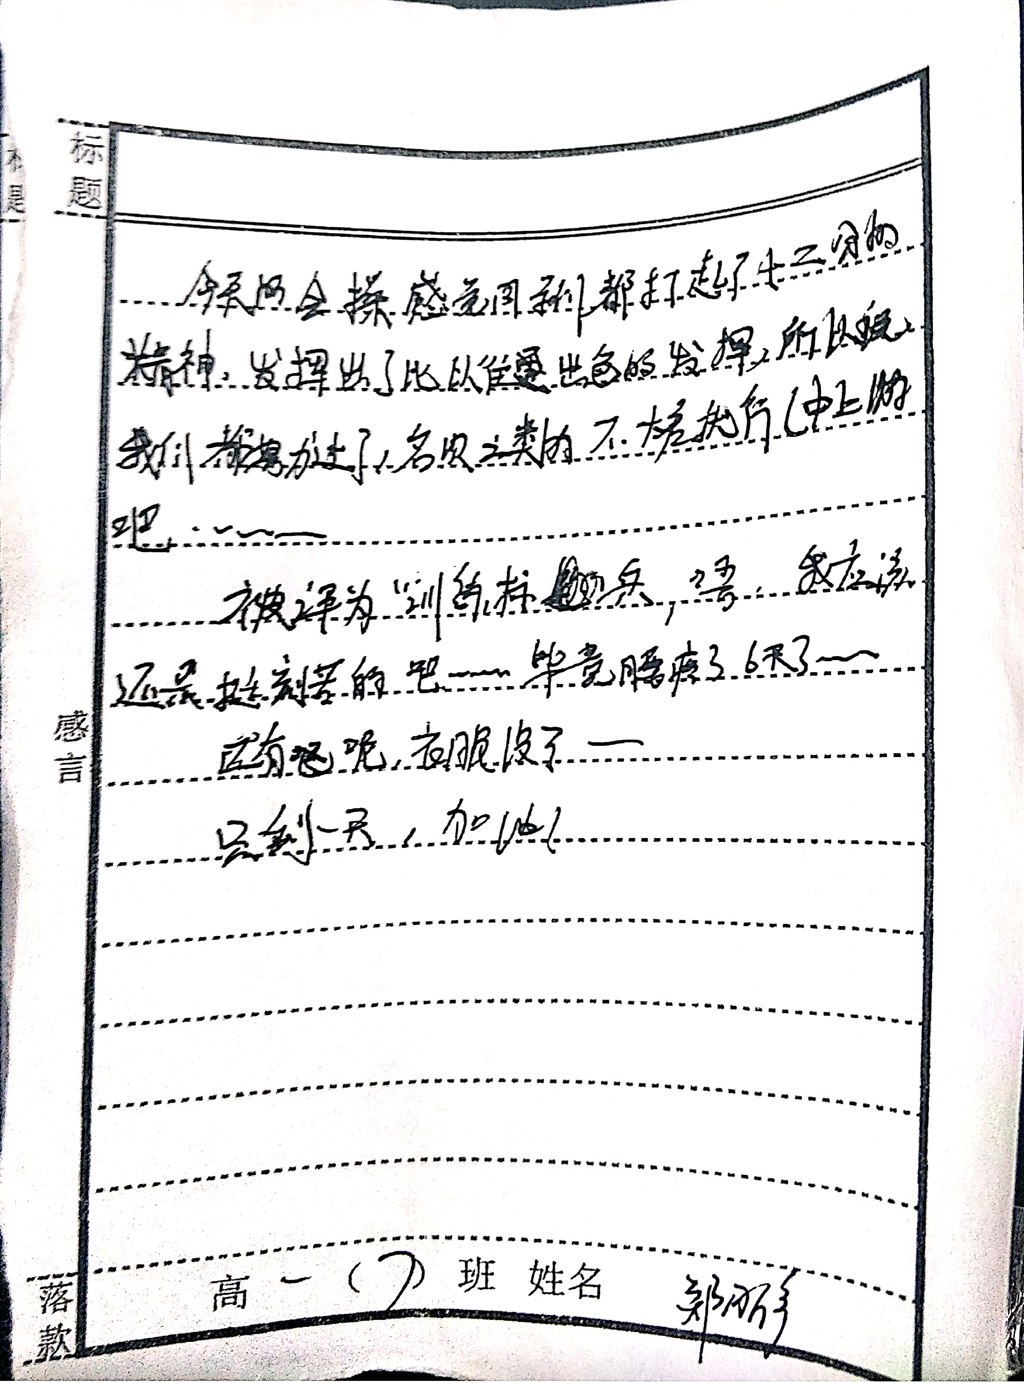 标题
今天的会操感觉同学们都打起了十二分的
精神，发挥出了比以往更出色的发挥，所以说，
我们都努力过了，名次之类的不太在行（中上游
吧
被评为“训练标兵，唔，我应该
还是挺刻苦的吧……毕竟腰疼了6天了
还有呢，衣服没了——
感言
只剩一天，加油！
落款
高一（7）班 姓名 郑